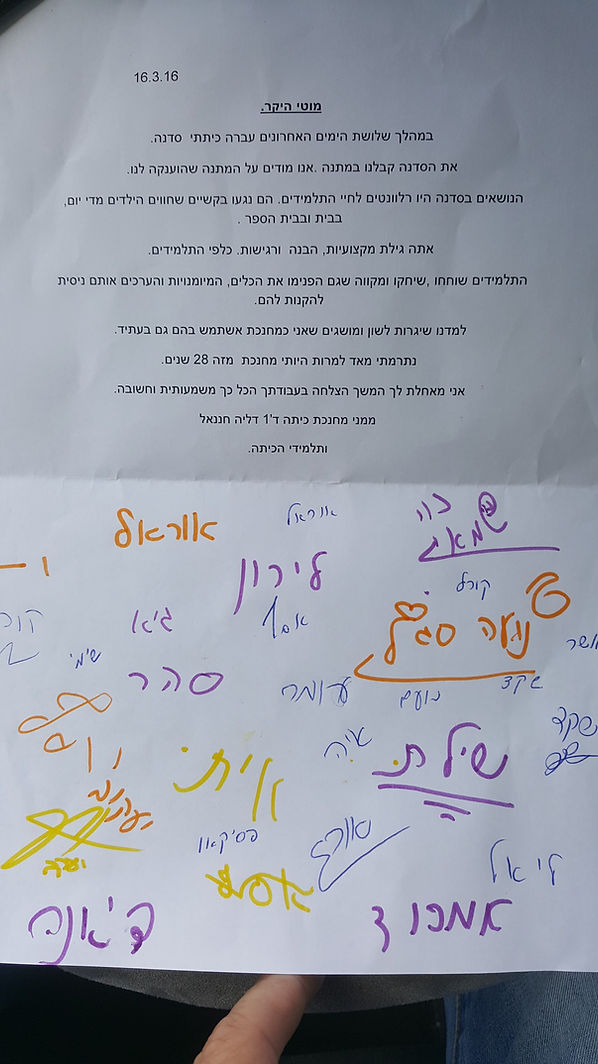 16.3.16
מוטי היקר.
במהלך שלושת הימים האחרונים עברה כיתתי סדנה.
את הסדנה קבלנו במתנה .אנו מודים על המתנה שהוענקה לנו.
הנושאים בסדנה היו רלוונטים לחיי התלמידים. הם נגעו בקשיים שחווים הילדים מדי יום,
בבית ובבית הספר .
אתה גילת מקצועיות, הבנה ורגישות. כלפי התלמידים.
התלמידים שוחחו ,שיחקו ומקווה שגם הפנימו את הכלים, המיומנויות והערכים אותם ניסית
להקנות להם.
למדנו שיגרות לשון ומושגים שאני כמחנכת אשתמש בהם גם בעתיד.
נתרמתי מאד למרות היותי מחנכת מזה 28 שנים.
אני מאחלת לך המשך הצלחה בעבודתך הכל כך משמעותית וחשובה.
ממני מחנכת כיתה ד'1 דליה חננאל
ותלמידי הכיתה.
אוראל
אוראל
לירון
קורל
גיא
נגעה סגל
שימי
סהר
נועם
שקד
שקד
איתי
שילת
ליאל